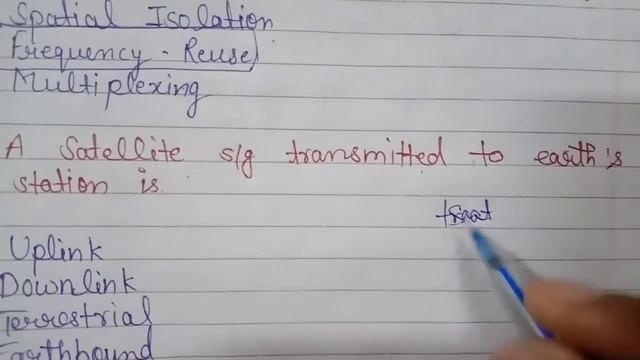 Spatial Isolation
Frequency - Reuse
Multiplexing
A Satellite s/g transmitted to earth's
station is
Uplink
Downlink
Terrestrial
Earthbound